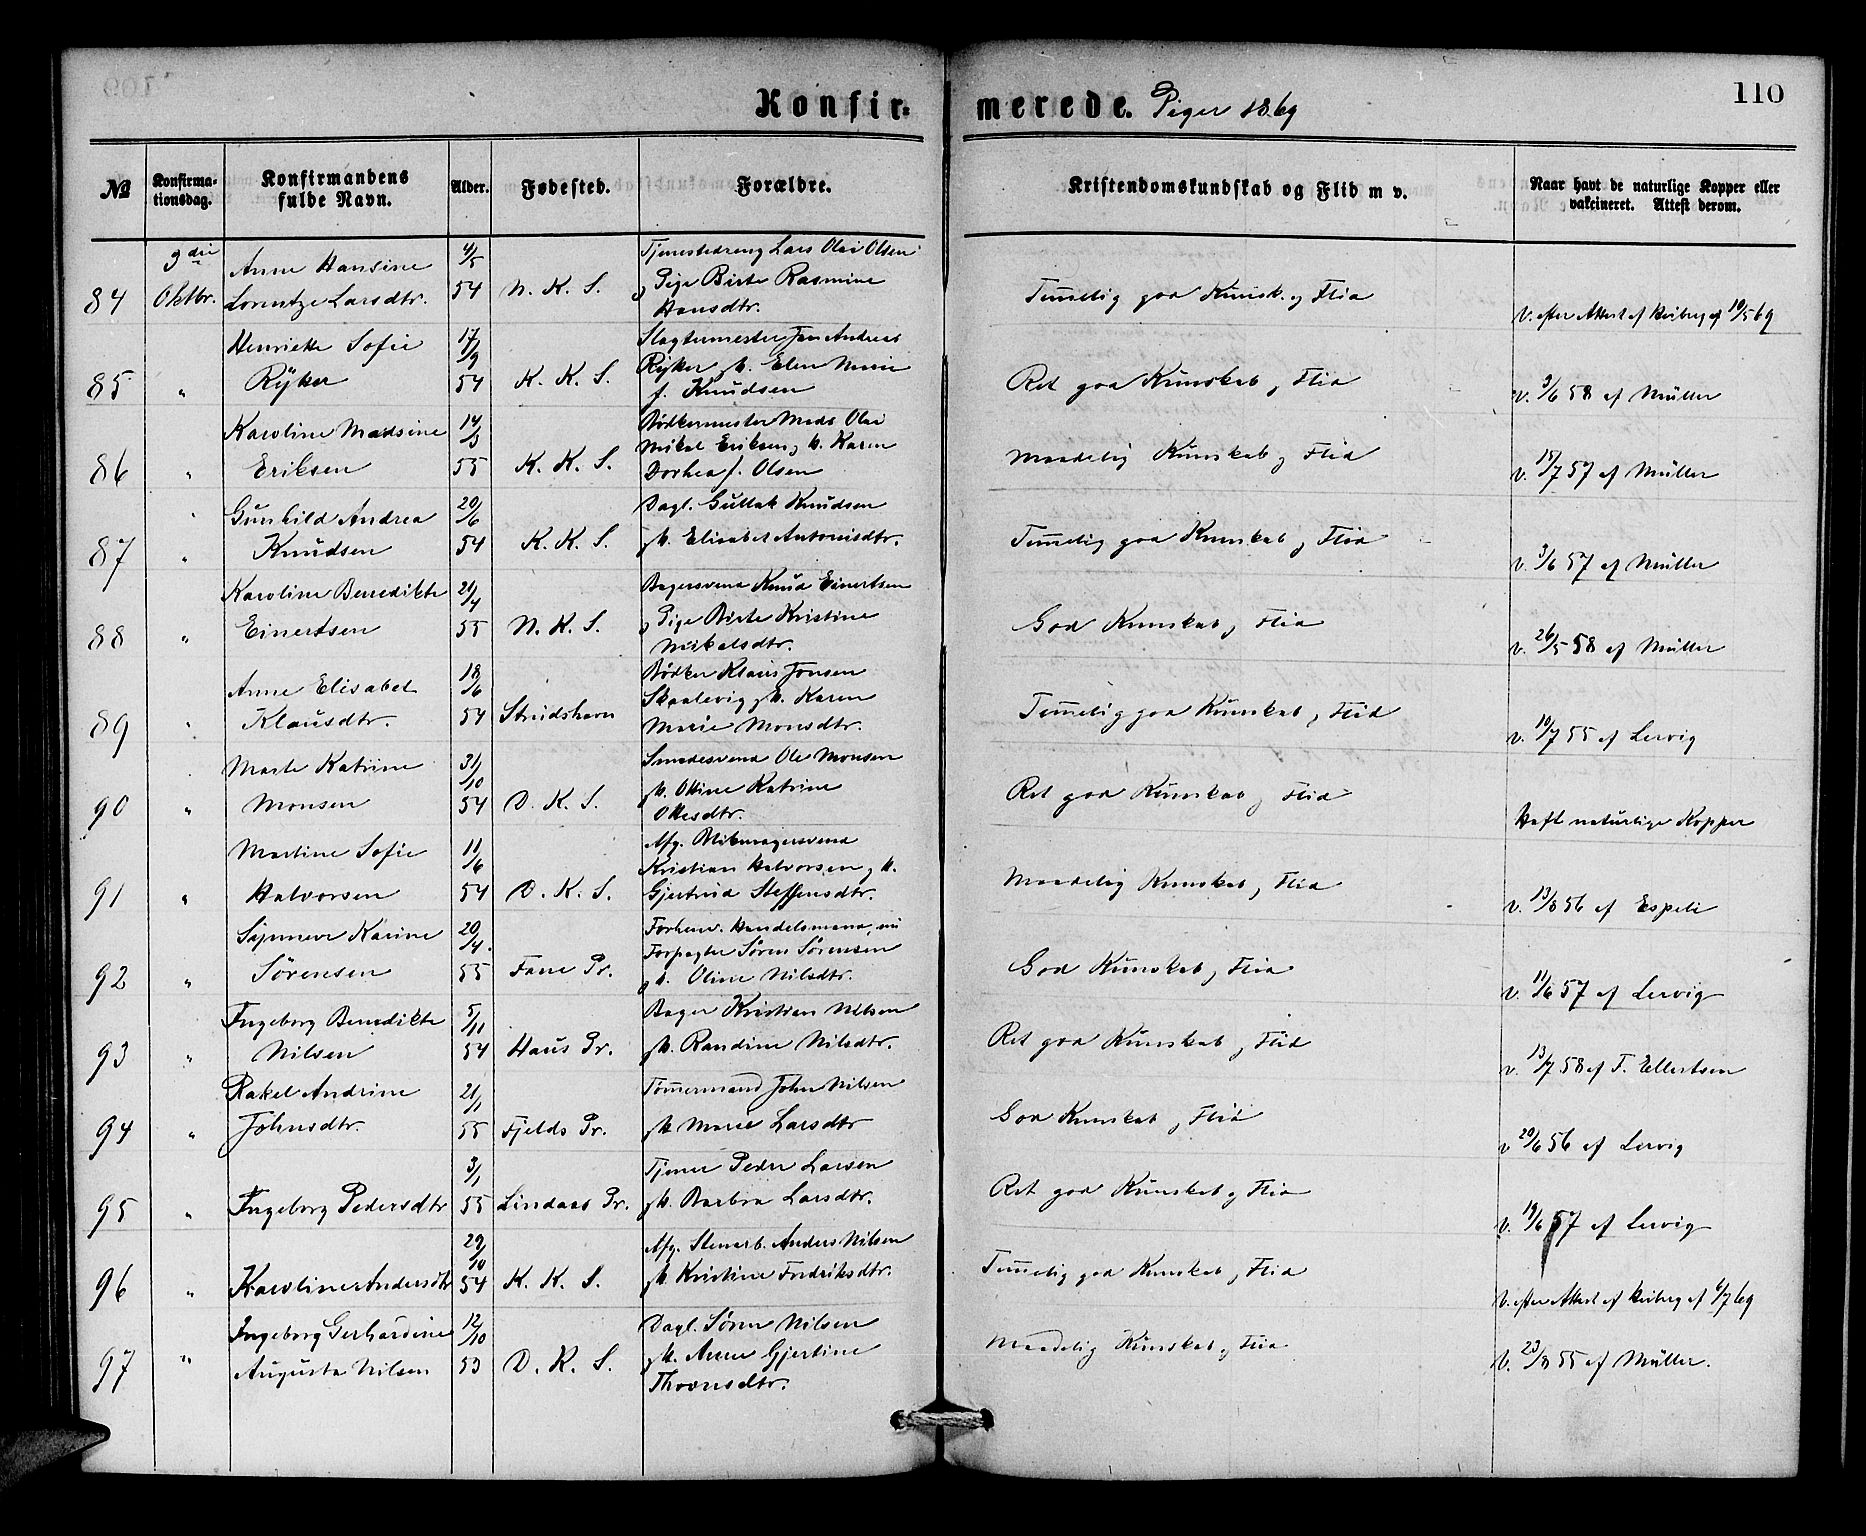 Konfirmerede. Piger 1869
110
№ Konfirmationsdag. Konfirmandens fulde Navn. Alder. Fødested. Forældre. Kristendomskundskab og Flid m v. Naar havt de naturlige Kopper eller vakcineret. Attest derom.
3die Anne Hansine 4/5 Tjenestedreng Lars Olai Olsen
84 Oktbr. Lorentze Larsdtr. 54 N. K. S. og Pige Birte Rasmine Temelig god Kunsk. og Flid V. efter Attest af Kviberg af 10/5 69
Hansdtr.
Henriette Sofie 17/9 Slagtermester Jan Andreas
85 " Ryker 54 K. K. S. Ryker og H. Elen Marie Ret god Kunskab og Flid v. 3/6 58 af Müller
f. Knudsen
Karoline Madsine 14/3 Bødkermester Mads Olai
86 " Eriksen 55 K. K. S. Mikal Eriksen og H. Karen Maadelig Kunskab og Flid v. 15/7 57 af Müller
Dorhea f. Olsen
Gunhild Andrea 20/6 Dagl. Gullak Knudsen
87 " Knudsen 54 K. K. S. og H. Elisabet Antonisdtr. Temelig god Kunskab og Flid v. 3/6 57 af Müller
Karoline Benedikte 21/4 Bagersvend Knud Einertsen
88 " Einertsen 55 N. K. S. og Pige Birte Kristine God Kunskab og Flid v. 26/5 58 af Müller
Mikalsdtr.
Anne Elisabet 18/6 Bødker Klaus Jonsen
89 " Klausdtr. 54 Strudshavn Skaalevig og H. Karen Temelig god Kunskab og Flid v. 10/7 55 af Lervig
Marie Monsdtr.
Marte Katrine 31/10 Smedesvend Ole Monsen
90 " Monsen 54 D. K. S. og H. Oline Katrine Ret god Kunskab og Flid Haft naturlige Kopper
Olesdtr.
Martine Sofie 11/6 Afg. Blikmagersvend
91 " Halvorsen 54 D. K. S. Kristian Halvorsen og H. Maadelig Kunskab og Flid v. 13/8 56 af Espeli
Gjertrud Steffensdtr.
Synneve Karine 20/4 Forhenv. Handelsmand, nu
92 " Sørensen 55 Fane Pr. Forpagter Søren Sørensen God Kunskab og Flid v. 11/6 57 af Lervig
og H. Oline Nilsdtr.
Ingeborg Benedikte 5/11 Bager Kristian Nilsen
93 " Nilsen 54 Haus Pr. og H. Randine Nilsdtr. Ret god Kunskab og Flid v. 13/7 58 af T. Ellertsen
Rakel Andrine 21/1 Tømermand John Nilsen
94 " Johnsdtr. 55 Fjelds Pr. og H. Marie Larsdtr God Kunskab og Flid v 20/6 56 af Lervig
3/1 Tjener Peder Larsen
95 " Ingeborg Pedersdtr 55 Lindaas Pr. og H. Barbra Larsdtr. Ret god Kunskab og Flid v. 19/6 57 af Lervig
29/10 Afg. Stenarb. Anders Nilsen
96 " Karoline Andersdtr 54 K. K. S. og H. Kristine Fredriksdtr. Temelig god Kunskab og Flid V. efter Attest af Kviberg af 6/7 69
Ingeborg Gerhardine 12/10 Dagl. Søren Nilsen
97 " Augusta Nilsen 53 D. K. S. og H. Anne Gjertine Maadelig Kunskab og Flid V. 23/8 55 af Müller.
Thoensdtr.